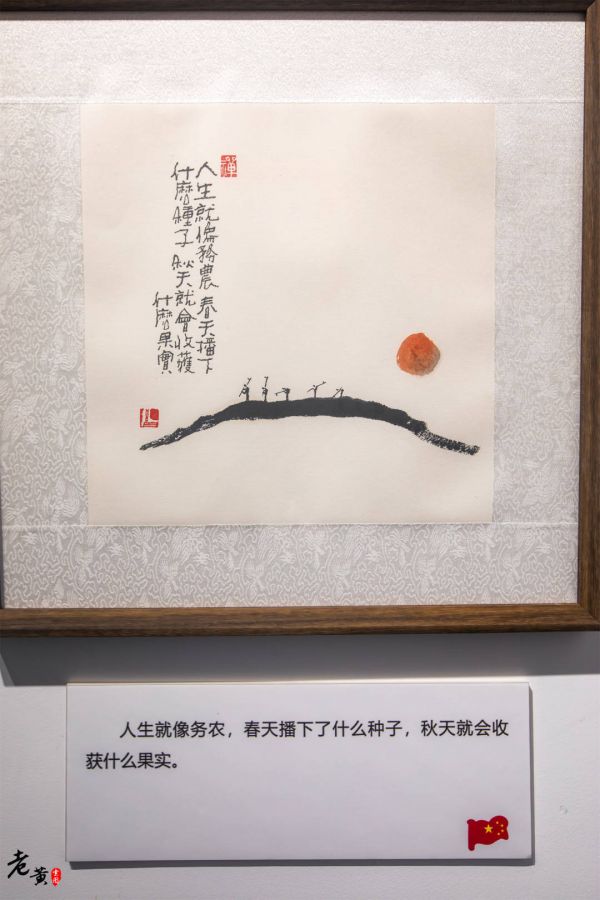 禪
人生就像務農 春天播下
什麼種子 秋天就會收獲
什麼果實
人生就像务农，春天播下了什么种子，秋天就会收
获什么果实。
老黄